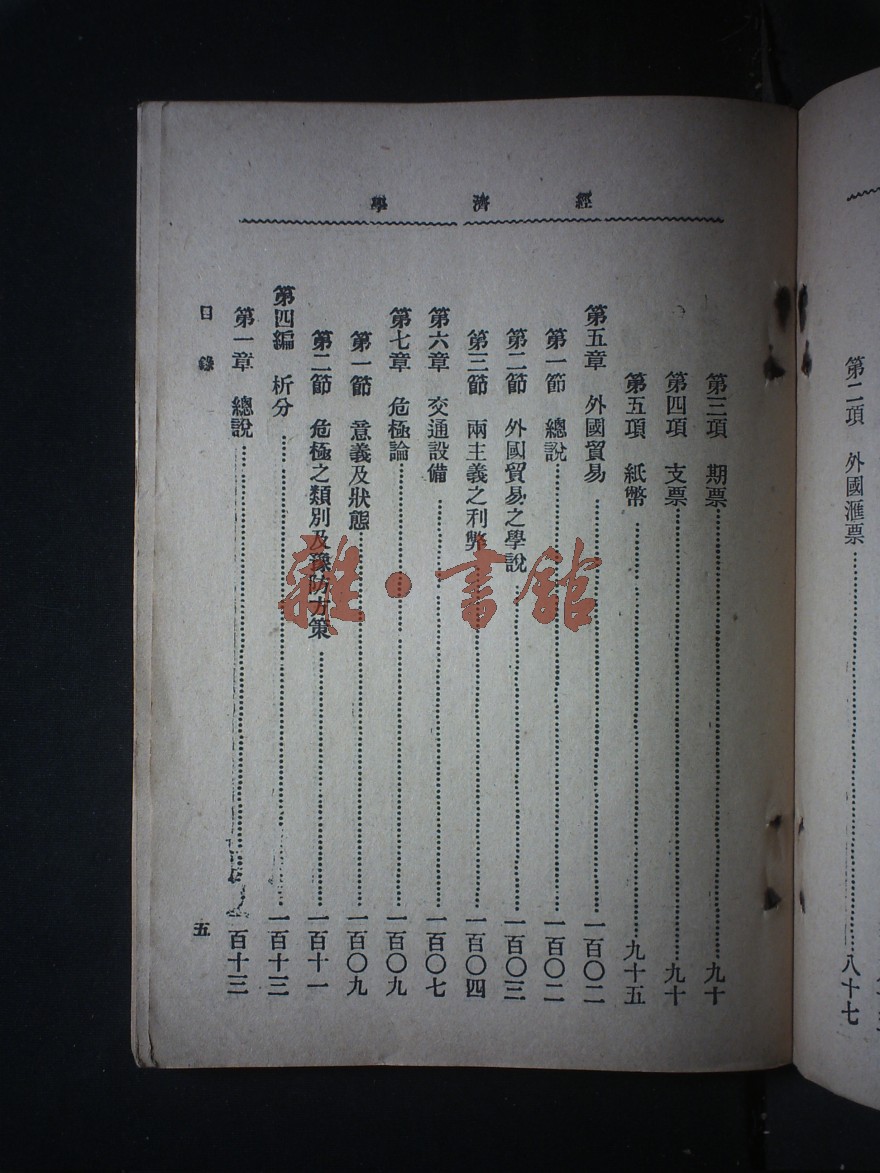 第二項　外國滙票……八十七
經濟學
第三項　期票……九十
第四項　支票……九十
第五項　紙幣……九十五
第五章　外國貿易……一百〇二
第一節　總說……一百〇二
第二節　外國貿易之學說……一百〇三
第三節　兩主義之利弊……一百〇四
第六章　交通設備……一百〇七
第七章　危極論……一百〇九
第一節　意義及狀態……一百〇九
第二節　危極之類別及豫防方策……一百十一
第四編　析分……一百十三
第一章　總說……一百十三
目錄
五
雜·書館